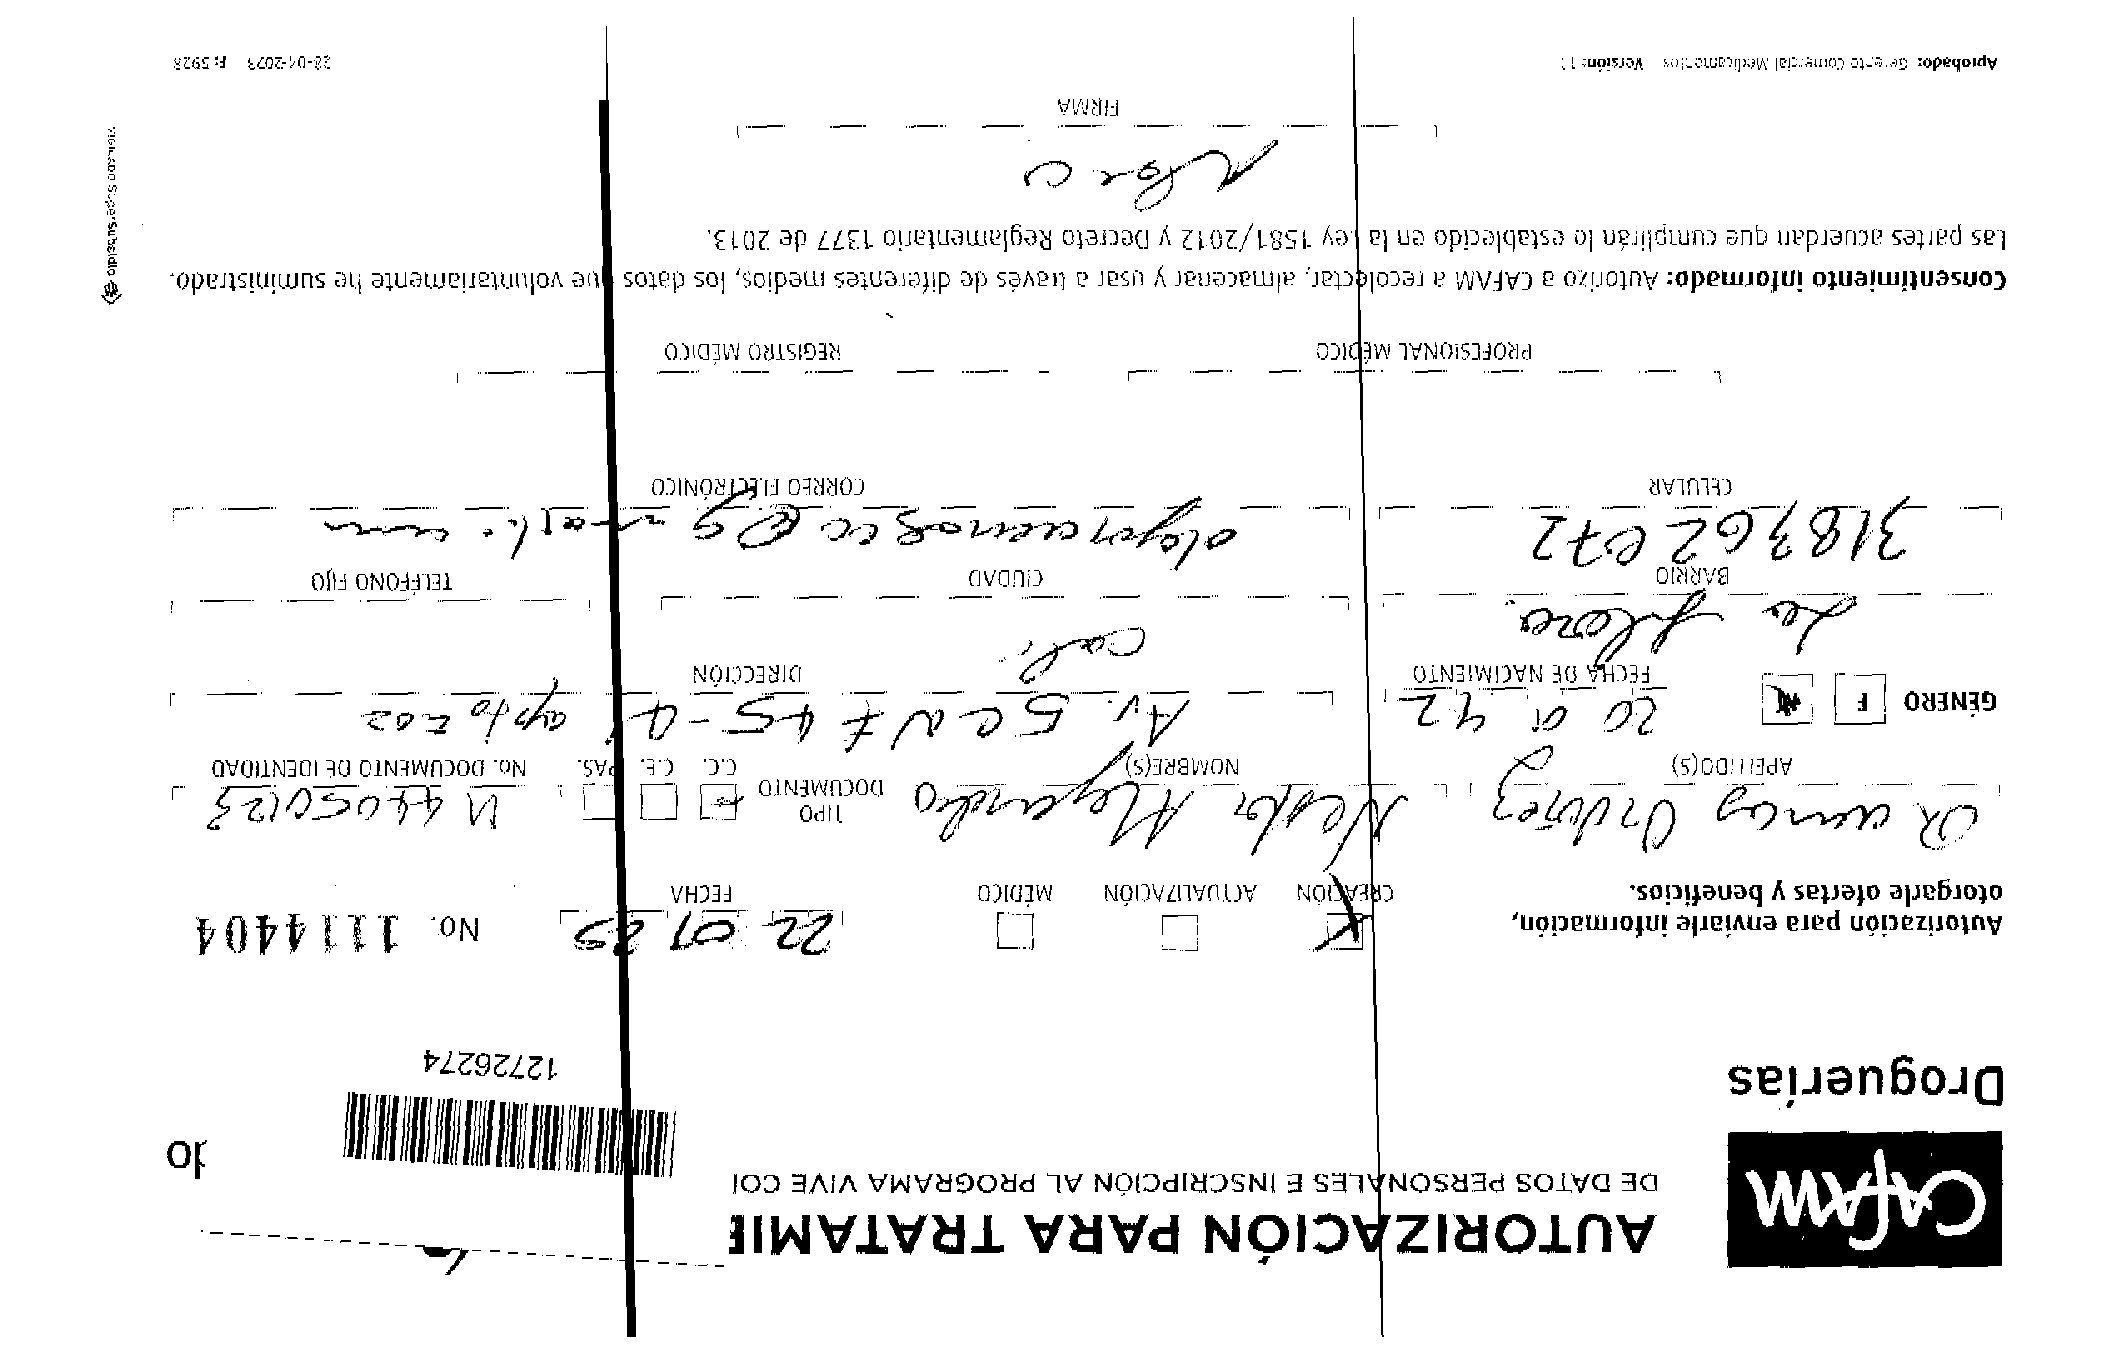 CAFAM
Droguerías
AUTORIZACIÓN PARA TRATAMIE
DE DATOS PERSONALES E INSCRIPCIÓN AL PROGRAMA VIVE COI
12726274
Autorización para enviarle información,
otorgarle ofertas y beneficios.
X
CREACIÓN
ACTUALIZACIÓN
MÉDICO
22 01
FECHA
No. 1114404
Ordoñez
APELLIDO(S)
Nestor Alejandro
NOMBRE(S)
TIPO
DOCUMENTO
C.C. C.E. PAS.
No. DOCUMENTO DE IDENTIDAD
GÉNERO F
20 01 42
FECHA DE NACIMIENTO
Av. 5 apto 202
DIRECCIÓN
La flora.
BARRIO
Cali
CIUDAD
TELÉFONO FIJO
CELULAR
CORREO ELECTRÓNICO
PROFESIONAL MÉDICO
REGISTRO MÉDICO
Consentimiento informado: Autorizo a CAFAM a recolectar, almacenar y usar a través de diferentes medios, los datos que voluntariamente he suministrado.
Las partes acuerdan que cumplirán lo establecido en la Ley 1581/2012 y Decreto Reglamentario 1377 de 2013.
FIRMA
Aprobado: Gerente Comercial Medicamentos Versión: 11
F: 5928